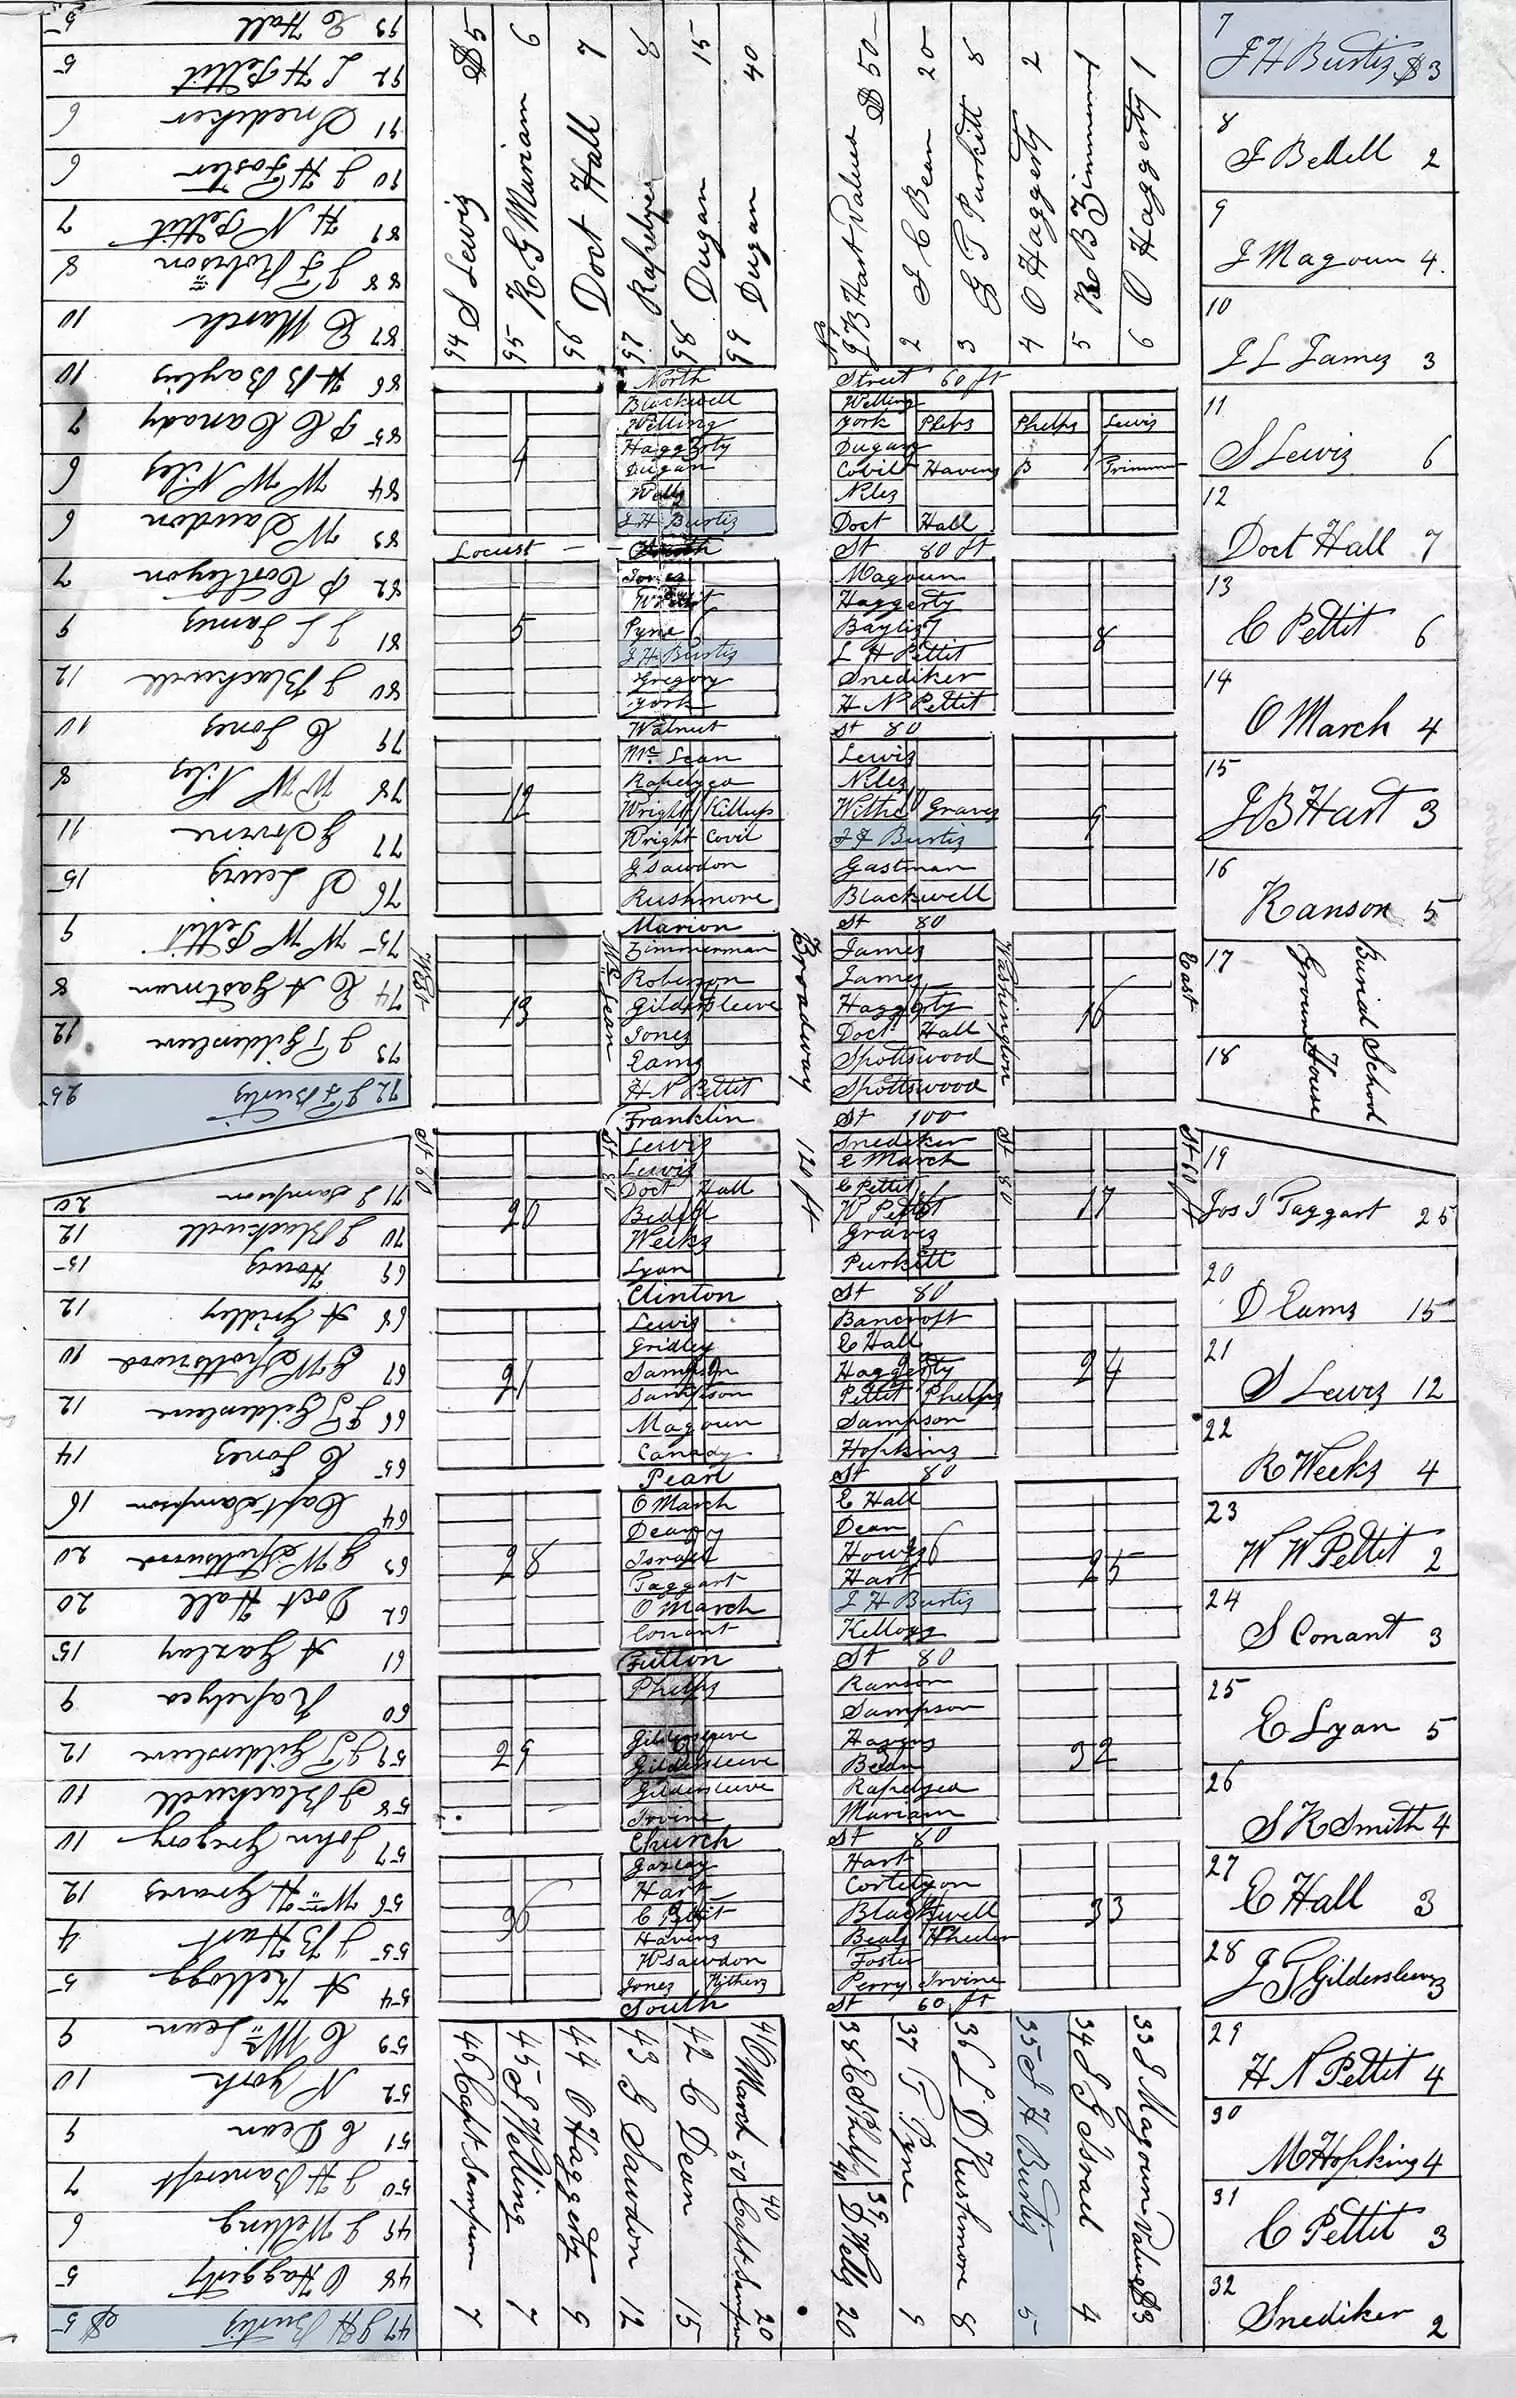 93 C Hall 5
92 L H Pettit 5
91 Snediker 6
90 J H Foster 6
89 H N Pettit 7
88 J F Robison 8
87 C March 10
86 H B Baylis 10
85 P C Canady 7
84 W W Niles 6
83 W Sawdon 6
82 P Cortleyon 7
81 J L James 9
80 J Blackwell 12
79 C Jones 10
78 W W Niles 8
77 G Irvine 11
76 S Lewis 15
75 W W Pettit 9
74 C A Gastman 8
73 J T Gildersleeve 12
72 J H Burtis 25
71 J Sampson 20
70 J Blackwell 12
69 Howes 15
68 A Gridley 12
67 G W Spottswood 10
66 J T Gildersleeve 12
65 C Jones 14
64 Capt Sampson 16
63 G W Spottswood 20
62 Doct Hall 20
61 A Gazlay 15
60 Rapelyea 9
59 J T Gildersleeve 12
58 J Blackwell 10
57 John Gregory 10
56 Wm H Graves 12
55 J B Hart 4
54 A Kellogg 5
53 C Mc Lean 9
52 N York 10
51 C Dean 9
50 J H Bancroft 7
49 J Welling 6
48 O Haggerty 5
47 J H Burtis $5
94 S Lewis $5
95 K G Mariam 6
96 Doct Hall 7
97 Rapelyea 8
98 Dugan 15
99 Dugan 40
No
J B Hart Value $50
2 J C Bean 20
3 G T Purkitt 8
4 O Haggerty 2
5 R B Zimmerman 1
6 O Haggerty 1
North Street 60 ft
Blackwell Welling
Welling York Phelps Phelps Lewis
Haggerty Dugan
4 3 2 1
Dugan Covil Havens B Trimmer
Wells Niles
J H Burtis Doct Hall
Locust St 80 ft
Jones Magoun
Haggerty
5 6 7 8
Pyne Baylis
J H Burtis L H Pettit
Gregory Snediker
York H N Pettit
Walnut St 80
Mc Lean Lewis
Rapelyea Niles
12 11 10 9
Wright Killups Withe Graves
Wright Covil J H Burtis
G Sawdon Gastman
Rushmore Blackwell
Marion St 80
Zimmerman James
Robinson James
13 16
Gildersleeve Haggerty
Jones Doct Hall
Eams Spottswood
H N Pettit Spottswood
Franklin St 100
Lewis Snediker
Lewis E March
Doct Hall C Pettit
20 17
Bedell W Pettit
Weeks Graves
Lyon Purkitt
Clinton St 80
Lewis Bancroft
Gridley C Hall
21 24
Sampson Haggerty
Sampson Pettit Phelps
Magoun Sampson
Canady Hopkins
Pearl St 80
O March E Hall
Dean Dean
28 26 25
Israel Howes
Taggart Hart
O March J H Burtis
Conant Kellogg
Fulton St 80
Phelps Ranson
Sampson
29 32
Gildersleeve Havens
Gildersleeve Bean
Gildersleeve Rapelyea
Irvine Mariam
Church St 80
Gazlay Hart
Hart Cortelyon
36 33
C Pettit Blackwell
Havens Beals Wheeler
W Sawdon Foster
Jones Withers Perry Irvine
South St 60 ft
West St 60
Mc Lean St 80
Broadway 120 ft
Washington St 80
East St 60 ft
46 Capt Sampson 7
45 J Welling 7
44 O Haggerty 9
43 G Sawdon 12
42 C Dean 15
41 O March 50
40 Capt Sampson 20
38 E S Phelps 40
39 D Wells 20
37 T Pyne 9
36 L D Rushmore 8
35 J H Burtis 5
34 J G Israel 4
33 J Magoun Value $3
7
J H Burtis $3
8
J Bedell 2
9
J Magoun 4
10
J L James 3
11
S Lewis 6
12
Doct Hall 7
13
C Pettit 6
14
O March 4
15
J B Hart 3
16
Ranson 5
17
18
Burial School
Ground House
19
Jos T Taggart 25
20
D Eams 15
21
S Lewis 12
22
R Weeks 4
23
W W Pettit 2
24
S Conant 3
25
C Lyan 5
26
S K Smith 4
27
C Hall 3
28
J T Gildersleeve 3
29
H N Pettit 4
30
M Hopking 4
31
C Pettit 3
32
Snediker 2